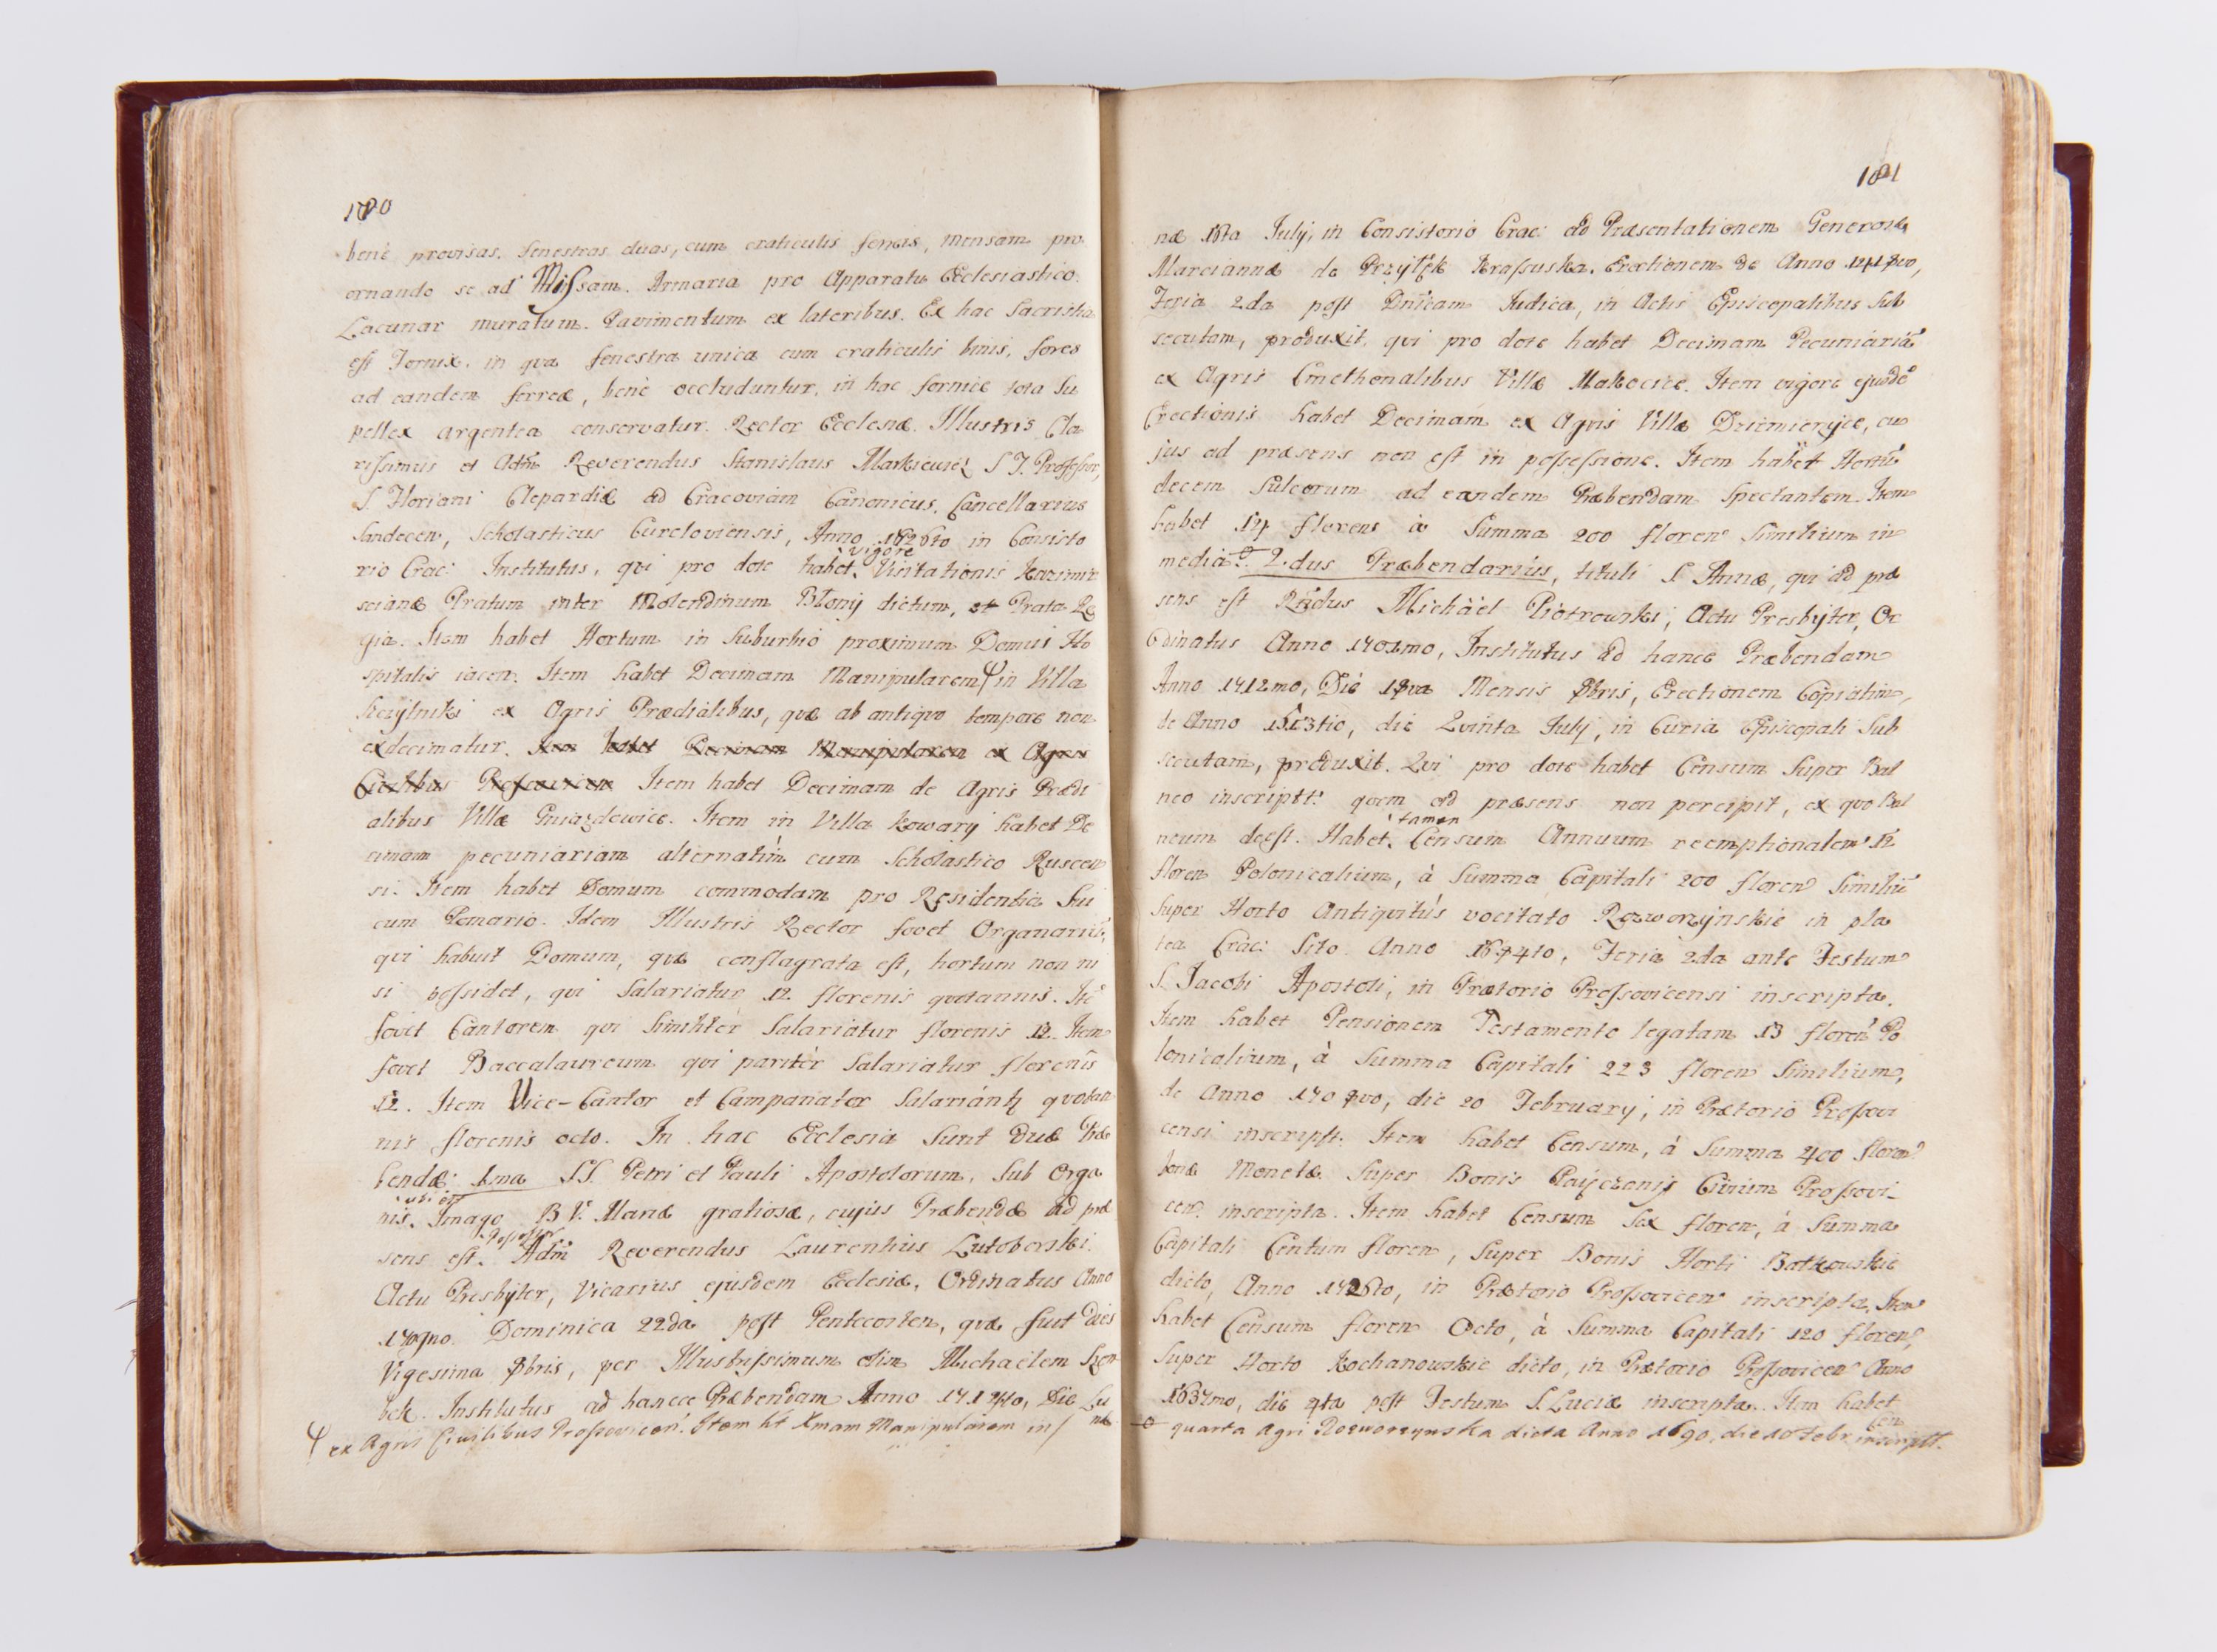 180
benè provisas. Fenestras duas, cum craticulis ferreis, Mensam pro
ornando se ad Missam. Armaria pro Apparatu Ecclesiastico.
Lacunar muratum. Pavimentum ex lateribus. Ex hac Sacristia
est Fornix, in qva fenestra unica cum craticulis binis, fores
ad eandem ferreæ, benè occluduntur, in hac fornice tota Su
pellex argentea conservatur. Rector Ecclesiæ Illustris Cla
rissimus et Adm̃ Reverendus Stanislaus Markiewicz S J. Professor,
S. Floriani Clepardiæ ad Cracoviam Canonicus, Cancellarius
Sandecen, Scholasticus Curcloviensis, Anno in Consisto
rio Crac: Institutus, qvi pro dote habet, vigore Visitationis Kazimir
scianæ Pratum inter Molendinum Błonij dictum, et Prata Re
gia. Item habet Hortum in Suburbio proximum Domui Ho
spitalis iacen. Item habet Decimam Manipularem in Villa
Szczytniki ex Agris Prædialibus, qvæ ab antiqvo tempore non
exdecimatur. Item habet Decimam Manipularem ex Agris
Civilibus Item habet Decimam de Agris Prædi
alibus Villæ Gniazdowice. Item in Villa Kowary habet De
cimam pecuniariam alternatim cum Scholastico Ruscen
si. Item habet Domum commodam pro Residentia Sui
cum Pomario. Idem Illustris Rector fovet Organariũ,
qvi habuit Domum, qvæ conflagrata est, hortum non ni
si possidet, qvi Salariatur 12 florenis qvotannis. Itẽ
fovet Cantorem qvi Similitèr Salariatur florenis 12. Item
fovet Baccalaureum qvi paritèr Salariatur florenis
12. Item Vice-Cantor et Campanator Salariantʒ qvotan
nis florenis octo. In hac Ecclesia Sunt Duæ Præ
bendæ: 1ma SS. Petri et Pauli Apostolorum, Sub Orga
nis, ubi est Imago B V. Mariæ gratiosæ, cujus Præbendæ ad præ
sens est Possessor Adm̃ Reverendus Laurentius Lutoborski
Actu Presbyter, Vicarius ejusdem Ecclesiæ, Ordinatus Anno
1709no. Dominica 22da post Pentecosten, qvæ fuit Dies
Vigesima 8bris, per Illustrissimum olim Michaëlem Szem
bek. Institutus ad hancce Præbendam Anno Die Lu
næ
ex Agris Civilibus Prossovicen. Item ht Xmam Manipularem in
181
næ 18ta July, in Consistorio Crac: ad Præsentationem Generosæ
Mariannæ de Przyłęk Krassuska. Erectionem de Anno
Feria 2da post Dnicam Judica, in Actis Episcopalibus Sub
secutam, produxit, qvi pro dote habet Decimam Pecuniariã
ex Agris Cmethonalibus Villæ Makocice. Item vigore ejusdẽ
Erectionis habet Decimam ex Agris Villæ Dziemierzyce, cu
jus ad præsens non est in possessione. Item habet Hortũ
decem Sulcorum ad eandem Præbendam Spectantem. Item
habet 14 florens à Summa 200 floren Similium in
media. 2dus Præbendarius, tituli S. Annæ, qvi ad præ
sens est Rñdus Michaël Piotrowski, Actu Presbyter, Or
dinatus Anno 1701mo, Institutus ad hance Præbendam
Anno 1712mo, Die 18va Mensis 8bris, Erectionem Copiatim,
de Anno die Qvinta July, in Curia Episcopali Sub
secutam, produxit. Qvi pro dote habet Censum Super Bal
neo inscriptt: qvem ad præsens non percipit, ex qvo Bal
neum deest. Habet tamen Censum Annuum reemptionalem 12
floren Polonicalium, à Summa Capitali 200 floren Similiũ
Super Horto Antiqvitùs vocitato Rozworzynskie in pla
tea Crac: Sito. Anno Feria 2da ante Festum
S. Jacobi Apostoli, in Prætorio Prossovicensi inscripta.
Item habet Pensionem Testamento legatam 13 floren Po
lonicalium, à Summa Capitali 223 floren Similium,
de Anno die 20 February, in Prætorio Prossovi
censi inscript: Item habet Censum, à Summa 400 floren
bonæ Monetæ Super Bonis Payczonis Civium Prossovi-
cen. inscripta. Item habet Censum Sex floren, à Summa
Capitali Centum floren, Super Bonis Horti Batkowskie
dicto, Anno in Prætorio Prossovicen inscripta. Item
habet Censum floren Octo, à Summa Capitali 120 floren,
Super Horto Kochanowskie dicto, in Prætorio Prossovicen Anno
1637mo, die 4ta post Festum S. Luciæ inscripta. Item habet
Cen
quarta Agri Rozworzynska dicta Anno 1690, die 10 Febr inscriptt.